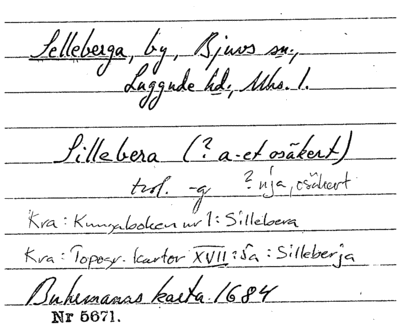 Selleberga, by, Bjuvs sn.,
Luggude hd., Mhs. l.
Sillebera (? a-et osäkert)
trol. -g ? nja, osäkert
Kra: Kungaboken nr 1: Sillebera
Kra: Topogr. kartor XVII: 5a: Silleberja
Buhrmanns karta. 1684
Nr 5671.